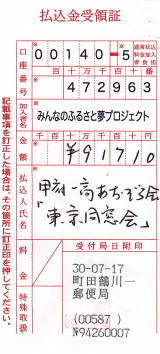 払込金受領証
口座番号
00140-5
通常払込料金加入者負担
百十万千百十番
472963
加入者名
みんなのふるさと夢プロジェクト
金額
千百十万千百十円
¥91710
払込人氏名
「東京同窓会」
料金
受付局日附印
特殊取扱
30-07-17
町田鶴川一
郵便局
(00587)
N94260007
記載事項を訂正した場合は、その箇所に訂正印を押してください。